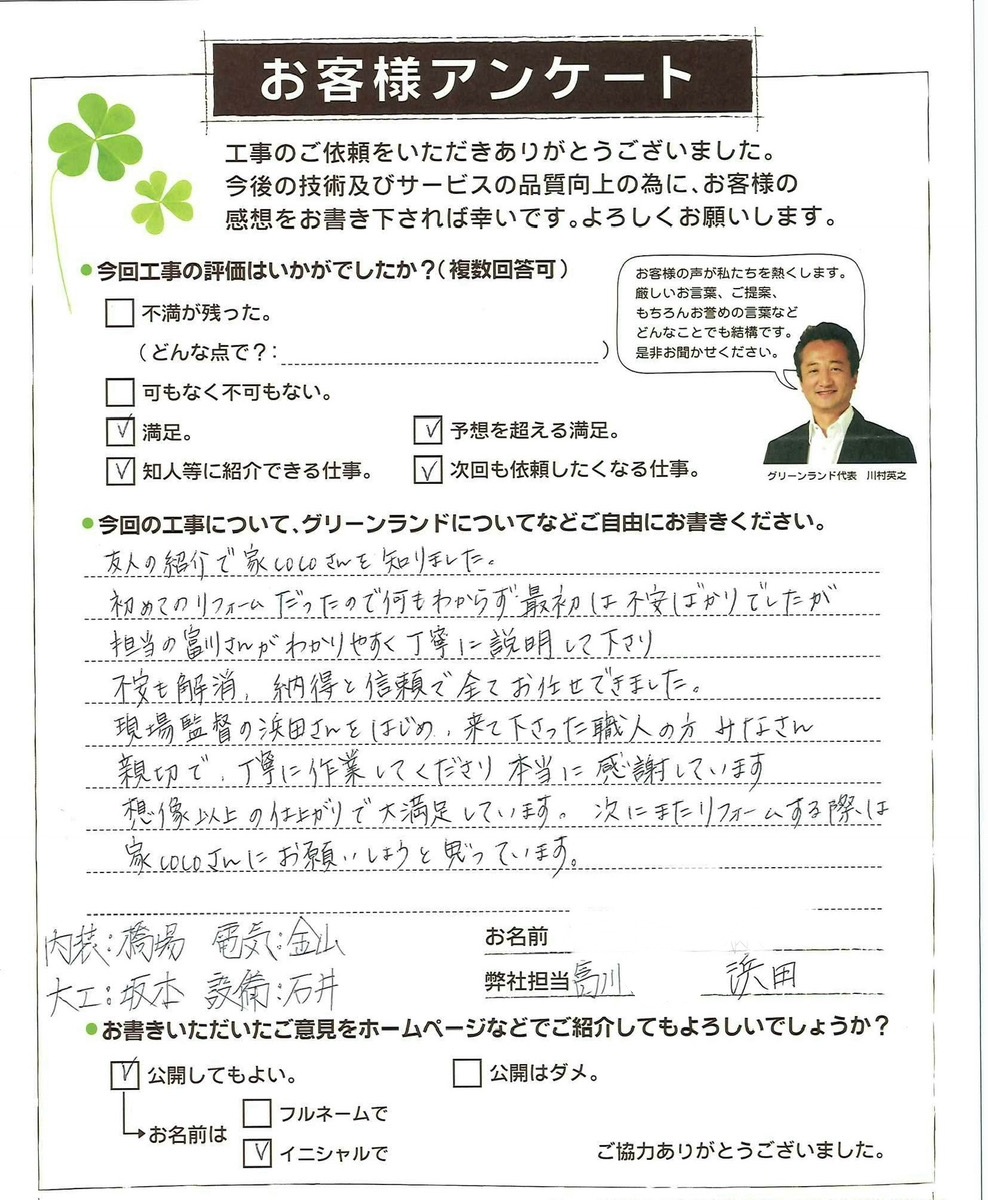 お客様アンケート
工事のご依頼をいただきありがとうございました。
今後の技術及びサービスの品質向上の為に、お客様の
感想をお書き下されば幸いです。よろしくお願いします。
●今回工事の評価はいかがでしたか?(複数回答可)
お客様の声が私たちを熱くします。
厳しいお言葉、ご提案、
もちろんお誉めの言葉など
どんなことでも結構です。
是非お聞かせください。
グリーンランド代表 川村英之
□ 不満が残った。
(どんな点で?: )
□ 可もなく不可もない。
☑ 満足。 ☑ 予想を超える満足。
☑ 知人等に紹介できる仕事。 ☑ 次回も依頼したくなる仕事。
●今回の工事について、グリーンランドについてなどご自由にお書きください。
友人の紹介で家COCOさんを知りました。
初めてのリフォームだったので何もわからず最初は不安ばかりでしたが
担当の富川さんがわかりやすく丁寧に説明して下さり
不安も解消、納得と信頼で全てお任せできました。
現場監督の浜田さんをはじめ、来て下さった職人の方みなさん
親切で、丁寧に作業してくださり本当に感謝しています
想像以上の仕上がりで大満足しています。次にまたリフォームする際は
家COCOさんにお願いしようと思っています。
内装:橋場 電気:金山
大工:坂本 設備:石井
お名前
弊社担当 富川 浜田
●お書きいただいたご意見をホームページなどでご紹介してもよろしいでしょうか?
☑ 公開してもよい。 □ 公開はダメ。
お名前は □ フルネームで
☑ イニシャルで
ご協力ありがとうございました。